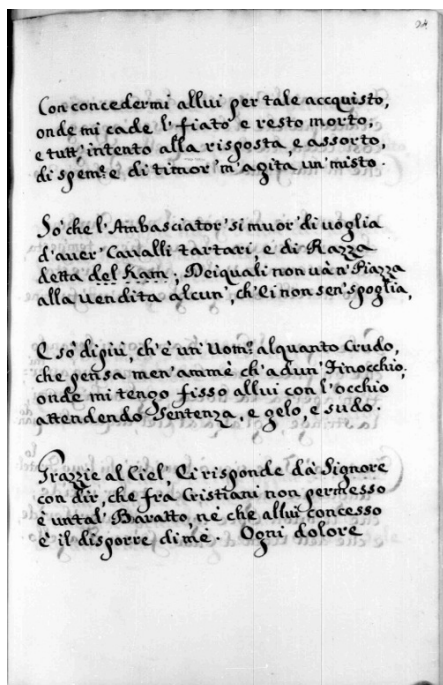 24
Con concedermi allui per tale accquisto,
onde mi cade l'fiato e resto morto,
e tutt'intento alla risposta, e assorto,
di speme e di timor' m'agita un'misto.
So' che l'Ambasciator' si muor' di voglia
d'aver' Cavalli tartari, e di Razza
detta del Kam; Deiquali non và n'Piazza
alla vendita alcun', ch'Ei non sen'spoglia,
E sò dipiù, ch'è un' Uomo alquanto Crudo,
che pensa men'ammè ch'adun'Finocchio,
onde mi tengo fisso allui con l'occhio
attendendo Sentenza, e gelo, e sudo.
Grazzie al Ciel, Ei risponde da Signore
con dir, che fra Cristiani non permesso
è untal' Baratto, nè che allui concesso
è il disporre di mè. Ogni dolore